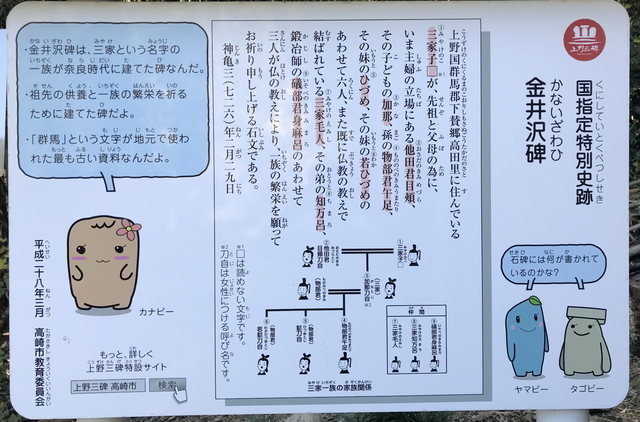 上野三碑
国指定特別史跡
くにしていとくべつしせき
かないざわひ
金井沢碑
上野国群馬郡下賛郷高田里に住んでいる
三家子□が、先祖と父母の為に、
いま主婦の立場にある他田君目頬、
その子どもの加那、孫の物部君午足、
その妹のひづめ、その妹の若ひづめの
あわせて六人、また既に仏教の教えで
結ばれている三家毛人、その弟の知万呂、
鍛冶師の礒部君身麻呂のあわせて
三人が仏の教えにより、一族の繁栄を願って
お祈り申し上げる石文である。
神亀三(七二六)年二月二九日
※1 □は読めない文字です。
※2 刀自は女性につける呼び名です。
・金井沢碑は、三家という名字の
一族が奈良時代に建てた碑なんだ。
・祖先の供養と一族の繁栄を祈る
ために建てた碑だよ。
・「群馬」という文字が地元で使わ
れた最も古い資料なんだよ。
カナピー
平成二十八年三月 高崎市教育委員会
もっと、詳しく
上野三碑特設サイト
上野三碑 高崎市
検索
①三家子□
②他田君
目頬刀自
(三家)
③加那刀自
(物部君)
④物部君午足
(物部君)
⑤馴刀自
(物部君)
⑥若馴刀自
仲間
⑦三家毛人
⑧三家知万呂
⑨礒部君身麻呂
三家一族の家族関係
石碑には何が書かれて
いるのかな?
ヤマピー
タゴピー